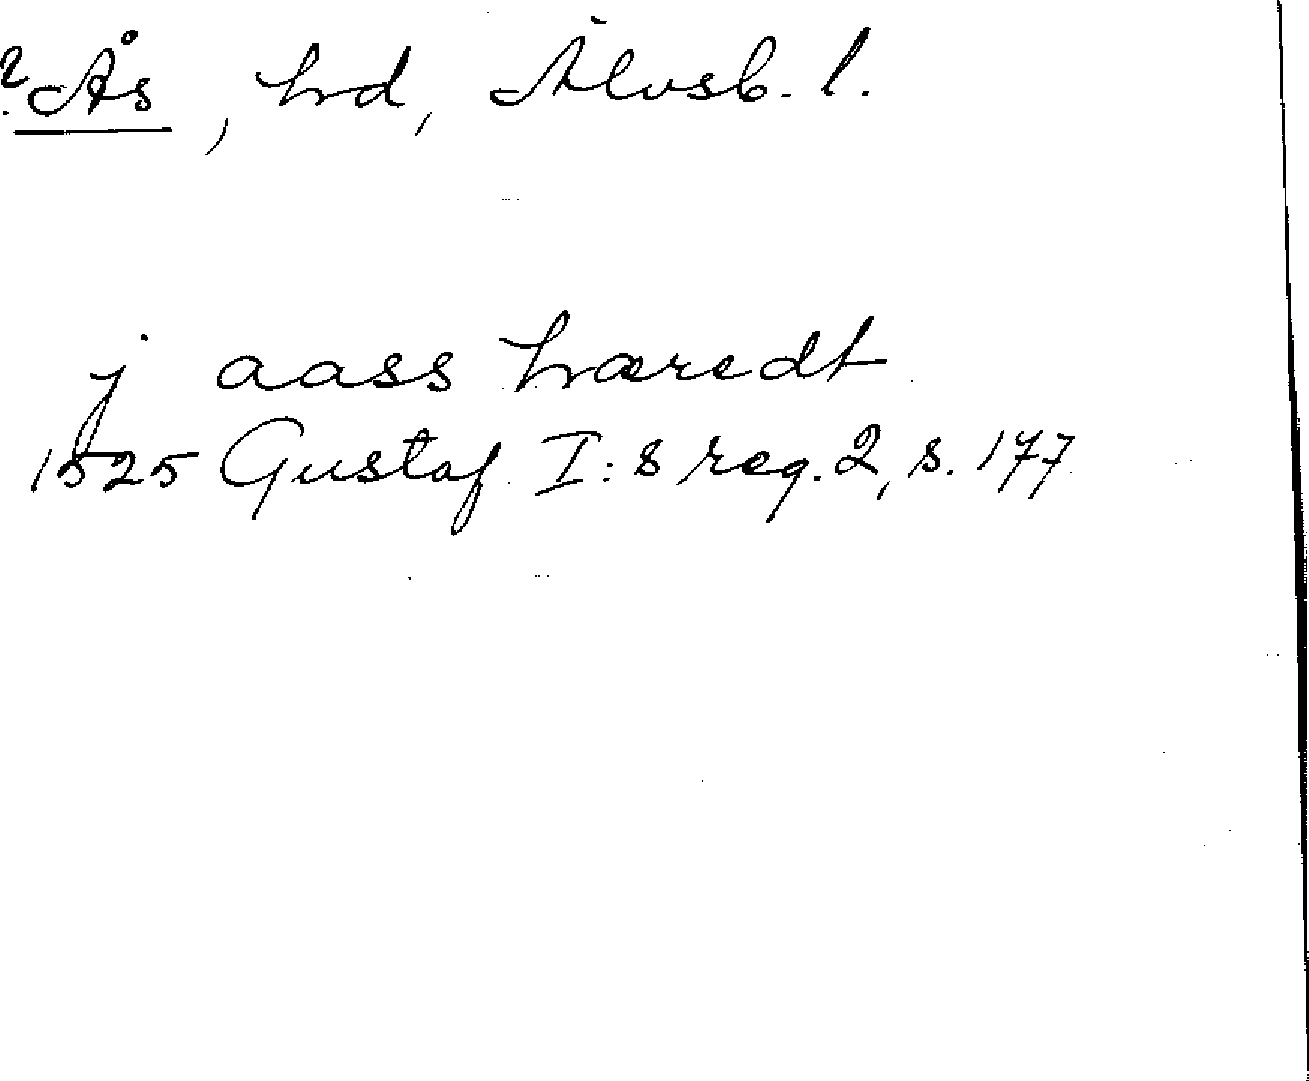 ? Ås, hd, Älvsb. l.
j aass hæredt
1525 Gustaf I:s reg. 2, s. 177